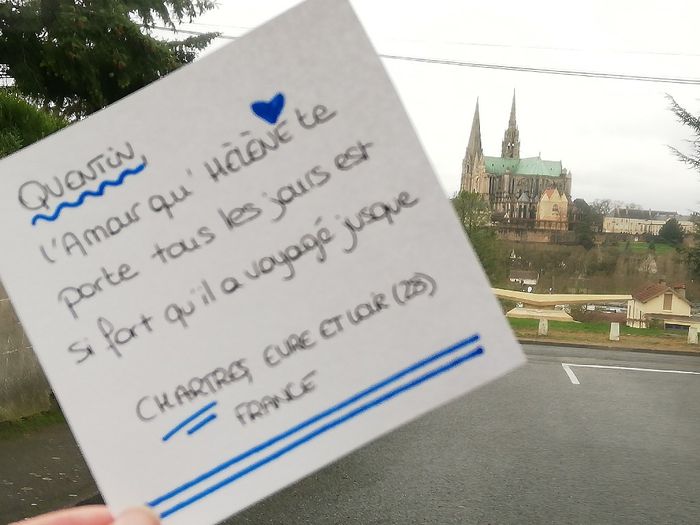 QUENTIN,
l'Amour qu'HÉLÈNE te
porte tous les jours est
si fort qu'il a voyagé jusque
CHARTRES, EURE ET LOIR (28)
FRANCE